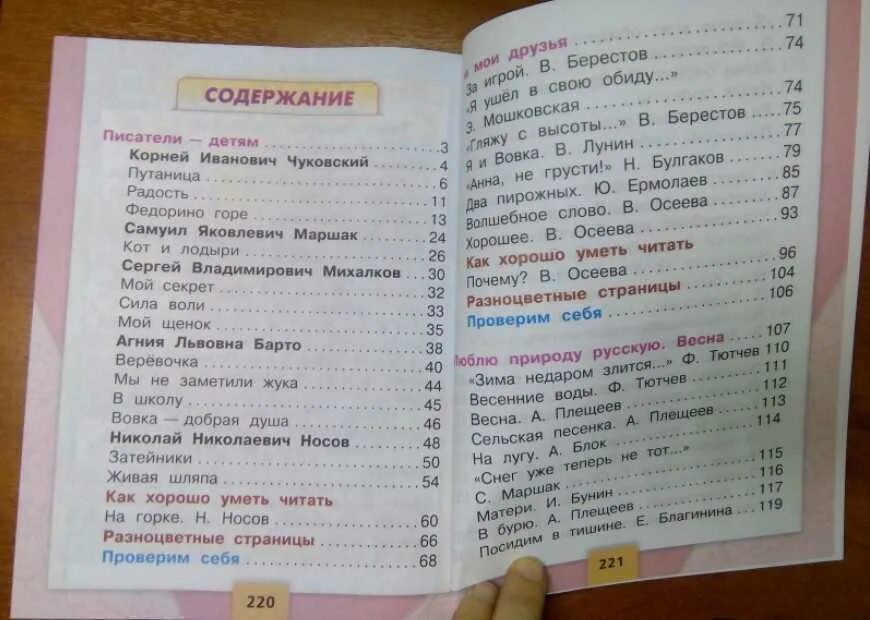 СОДЕРЖАНИЕ
Писатели — детям ........ 3
Корней Иванович Чуковский ........ 4
Путаница ........ 6
Радость ........ 11
Федорино горе ........ 13
Самуил Яковлевич Маршак ........ 24
Кот и лодыри ........ 26
Сергей Владимирович Михалков ........ 30
Мой секрет ........ 32
Сила воли ........ 33
Мой щенок ........ 35
Агния Львовна Барто ........ 38
Верёвочка ........ 40
Мы не заметили жука ........ 44
В школу ........ 45
Вовка — добрая душа ........ 46
Николай Николаевич Носов ........ 48
Затейники ........ 50
Живая шляпа ........ 54
Как хорошо уметь читать
На горке. Н. Носов ........ 60
Разноцветные страницы ........ 66
Проверим себя ........ 68
220
и мои друзья ........ 71
За игрой. В. Берестов ........ 74
«Я ушёл в свою обиду...»
Э. Мошковская ........ 74
«Гляжу с высоты...» В. Берестов ........ 75
Я и Вовка. В. Лунин ........ 77
«Анна, не грусти!» Н. Булгаков ........ 79
Два пирожных. Ю. Ермолаев ........ 85
Волшебное слово. В. Осеева ........ 87
Хорошее. В. Осеева ........ 93
Как хорошо уметь читать
Почему? В. Осеева ........ 96
Разноцветные страницы ........ 104
Проверим себя ........ 106
Люблю природу русскую. Весна ........ 107
«Зима недаром злится...» Ф. Тютчев 110
Весенние воды. Ф. Тютчев ........ 111
Весна. А. Плещеев ........ 112
Сельская песенка. А. Плещеев ........ 113
На лугу. А. Блок ........ 114
«Снег уже теперь не тот...»
С. Маршак ........ 115
Матери. И. Бунин ........ 116
В бурю. А. Плещеев ........ 117
Посидим в тишине. Е. Благинина ........ 119
221